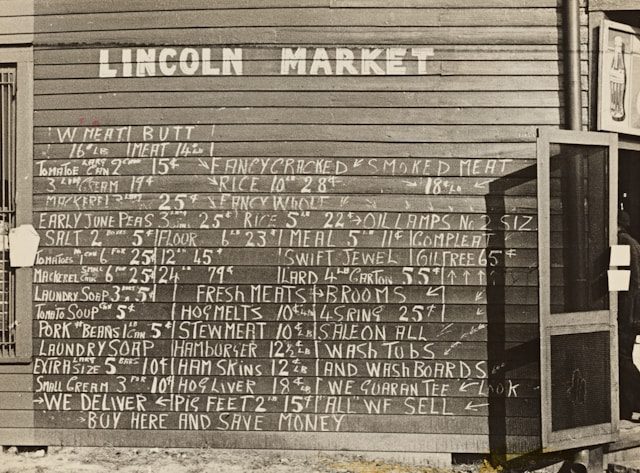 LINCOLN MARKET
W MEAT | BUTT
16¢ LB | MEAT 14¢ LB
TOMATOE LARG CAN 2 CANS 15¢ →FANCY CRACKED ↙ SMOKED MEAT
3 CREAM 19¢ RICE 10 LB 28¢ → 18¢ LB ↙
MACKEREL 3 25¢ ↘ FANCY WHOLE ↙
EARLY JUNE PEAS 3 25¢ RICE 5 LB 22¢ → OIL LAMPS No 2 SIZ
SALT 2 BOXES 5¢ | FLOUR 6 LB 23¢ | MEAL 5 LB 11¢ | COMPLEAT
TOMATOES No 1 CAN 6 FOR 25¢ | 12 LB 45¢ SWIFT JEWEL | OIL FREE 65¢
MACKEREL SMALL CAN 6 FOR 25¢ | 24 LB 79¢ | LARD 4 LB CARTON 55¢ ↑ ↑ ↑
LAUNDRY SOAP 3 BARS 5¢ | FRESH MEATS |→ BROOMS ↙
TOMATO SOUP CAN 5¢ | HOG MELTS 10¢ LB | 4 STRING 25¢ |
PORK & BEANS 1 LB CAN 5¢ | STEW MEAT 10¢ LB | SALE ON ALL ↙
LAUNDRY SOAP | HAMBURGER 12½¢ LB | WASH TUBS ↙
EXTRA SIZE LARG 5 BARS 10¢ | HAM SKINS 12½ LB | AND WASH BOARDS ↙
SMALL CREAM 3 FOR 10¢ | HOG LIVER 18¢ LB | WE GUARANTEE ← LOOK
→WE DELIVER ← | PIG FEET 2 LB 15¢ | "ALL" WE SELL ←
→BUY HERE AND SAVE MONEY